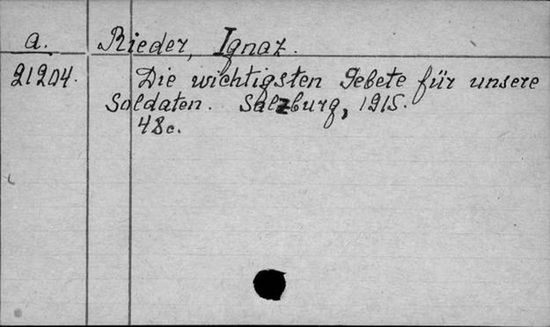 a. Rieder, Ignaz.
21204. Die wichtigsten Gebete für unsere
Soldaten. Salzburg, 1915.
48c.